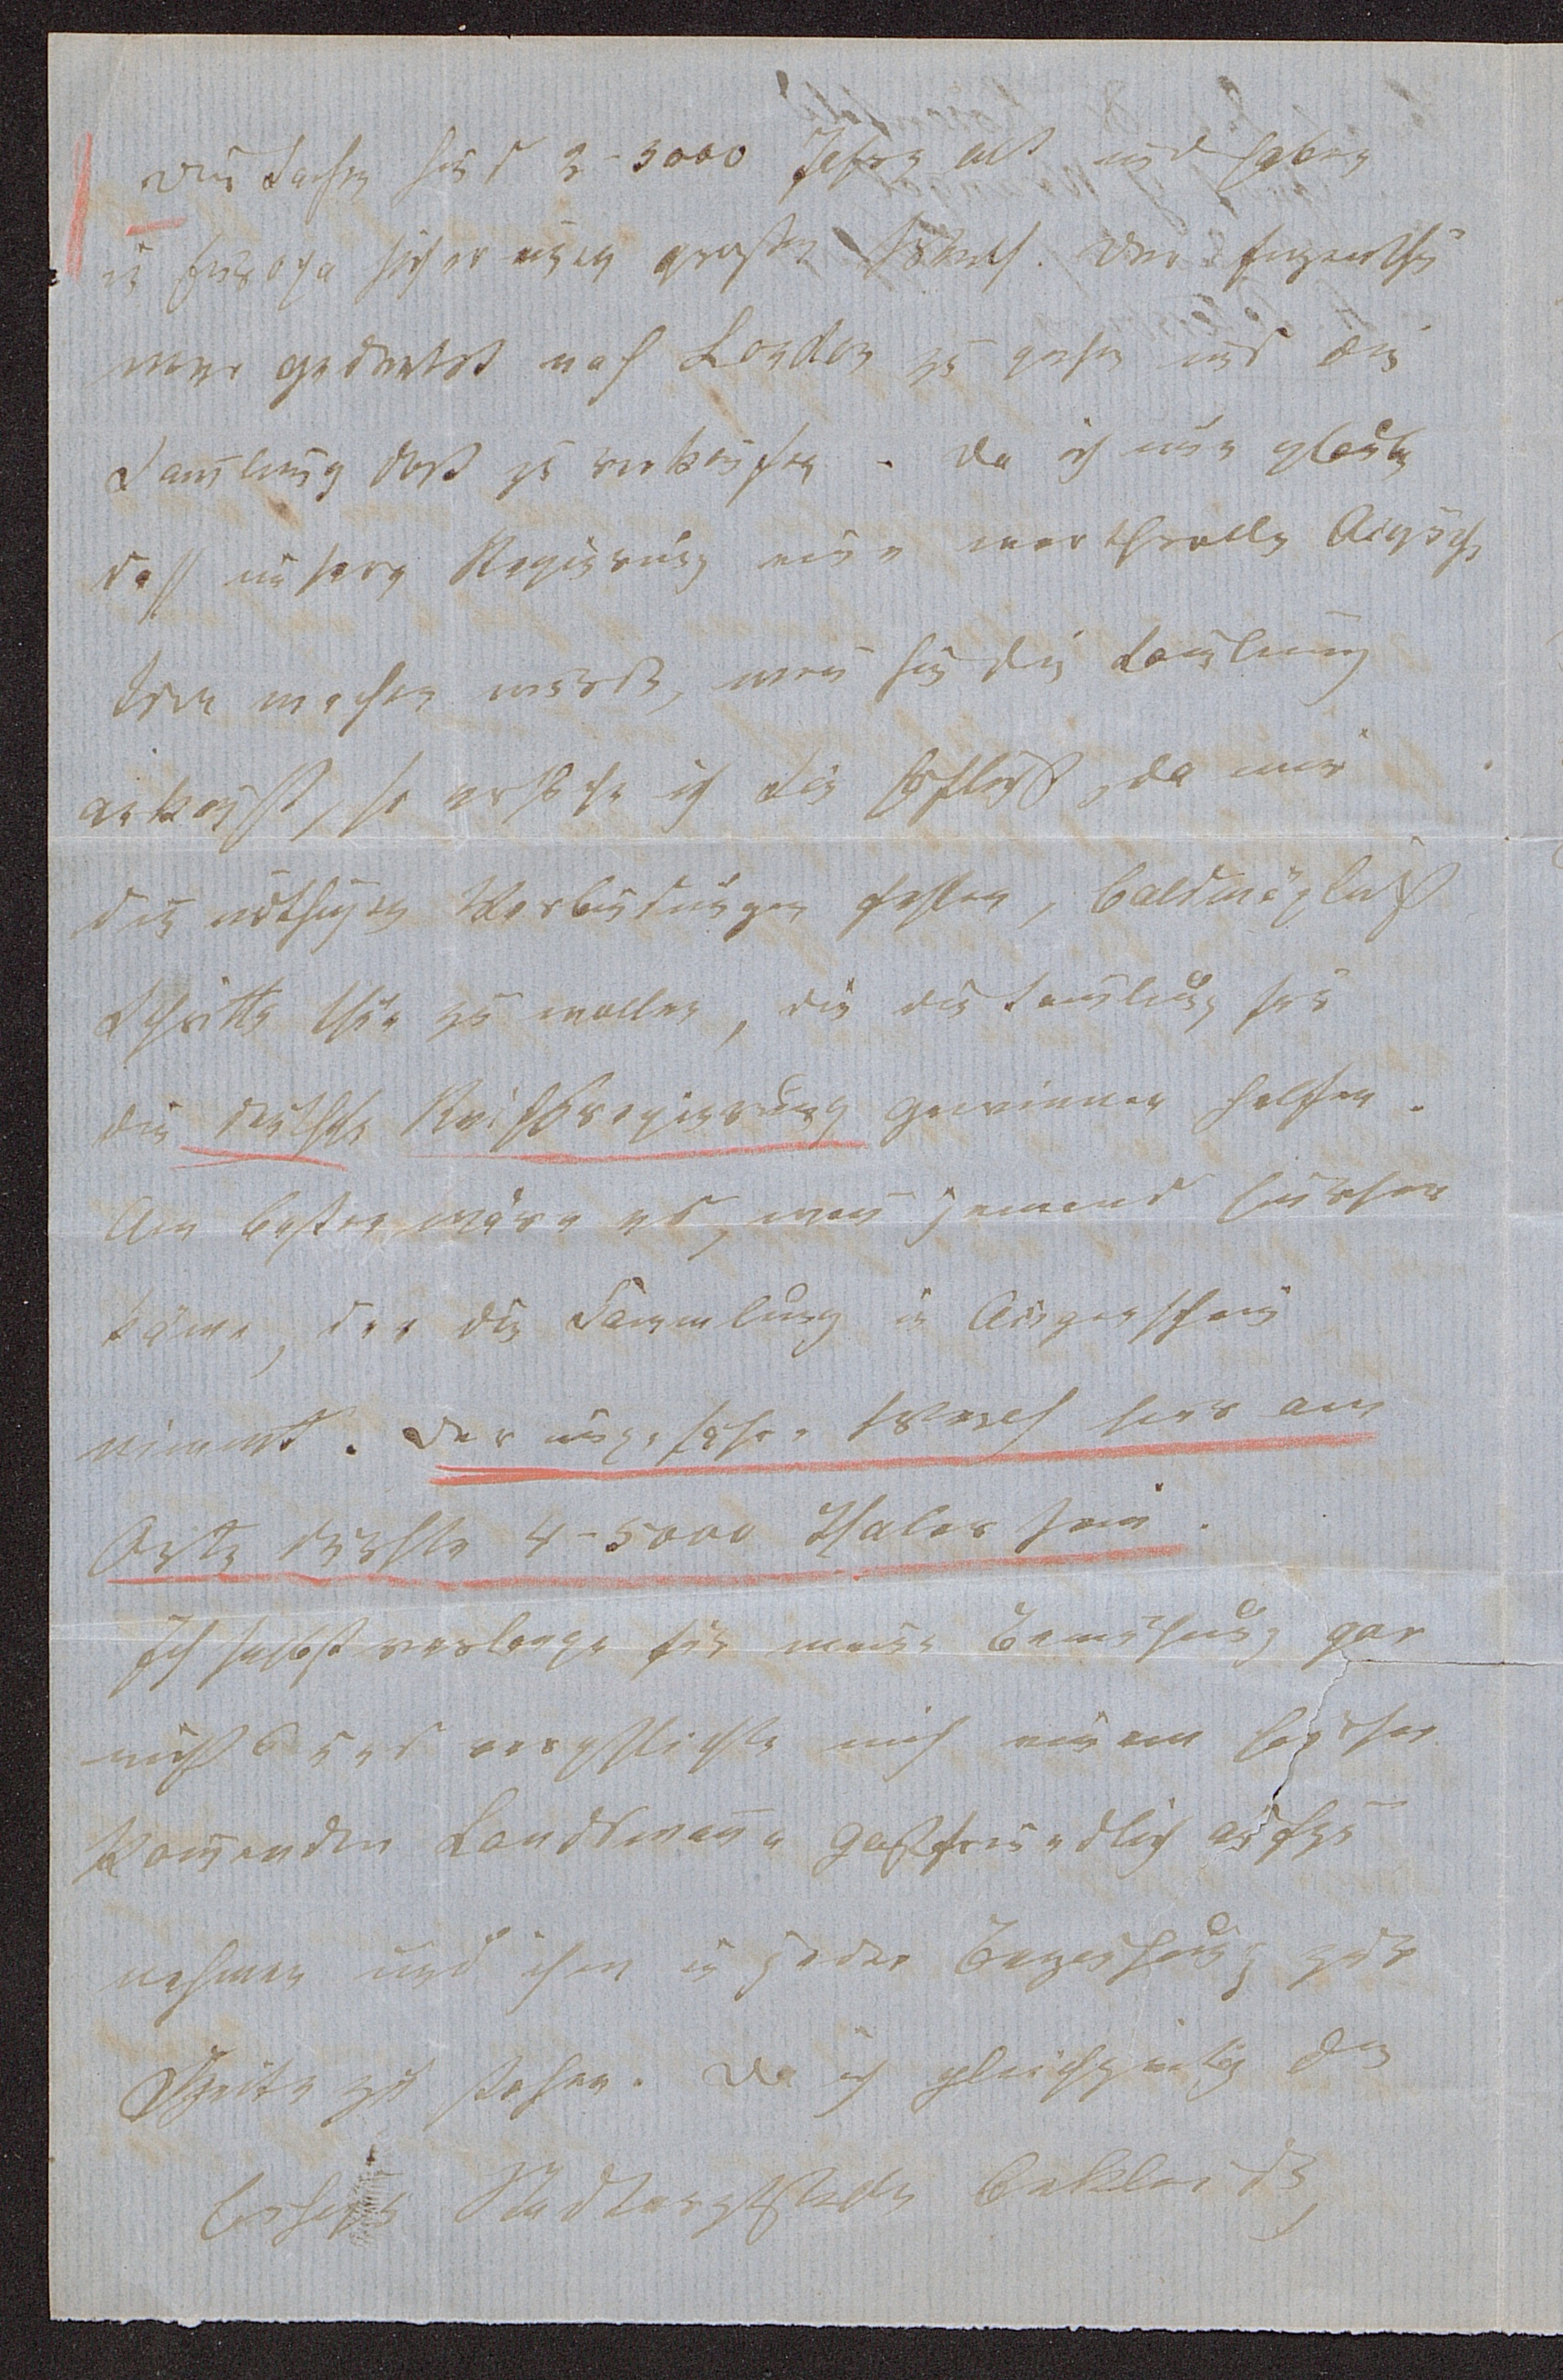 Die Sachen sind 2-3000 Jahre alt und haben
in Europa sicher einen großen Werth. Der Eigenthü
mer gedenkt nach London zu gehen und die
Samlung dort zu verkaufen. Da ich nun glaube
daß unsere Regierung eine werthvolle Acquisi
tion machen würde, wen sie die Samlung
ankauft, so ersuche ich Sie höflichst, da mir
die nöthigen Verbindungen fehlen, baldmöglichst
Schritte thun zu wollen, die die Samlung für
die deutsche Reichsregierung gewinnen helfen.
Am besten wäre es, wen jemand hierher
käme, der die Sammlung in Augenschein
nimmt. Der ungefähre Werth hier am
Orte dürfte 4-5000 Thaler sein.
Ich selbst verlange für meine Bemühung gar
nichts und verpflichte mich einem hierher
komenden Landsmann gastfreundlich aufzu
nehmen und ihm in jeder Beziehung zur
Seite zu stehen. Da ich gleichzeitig die
hiesige Stadtarztstelle bekleide,